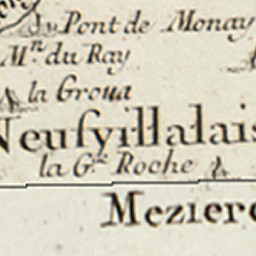 du Pont de Monay
M.ⁿ du Ray
la Groua
Neufvillalais
la G.ᵈᵉ Roche
Meziere